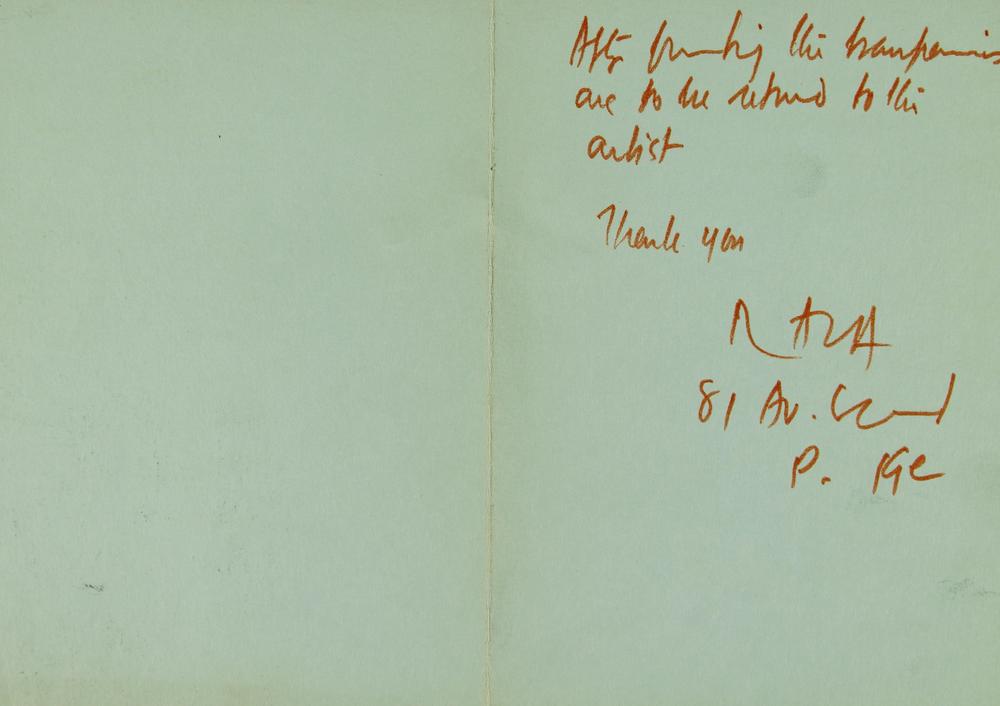 After printing the transparencies
are to be returned to the
artist
Thank you
RAZA
81 Av.
P. 19e